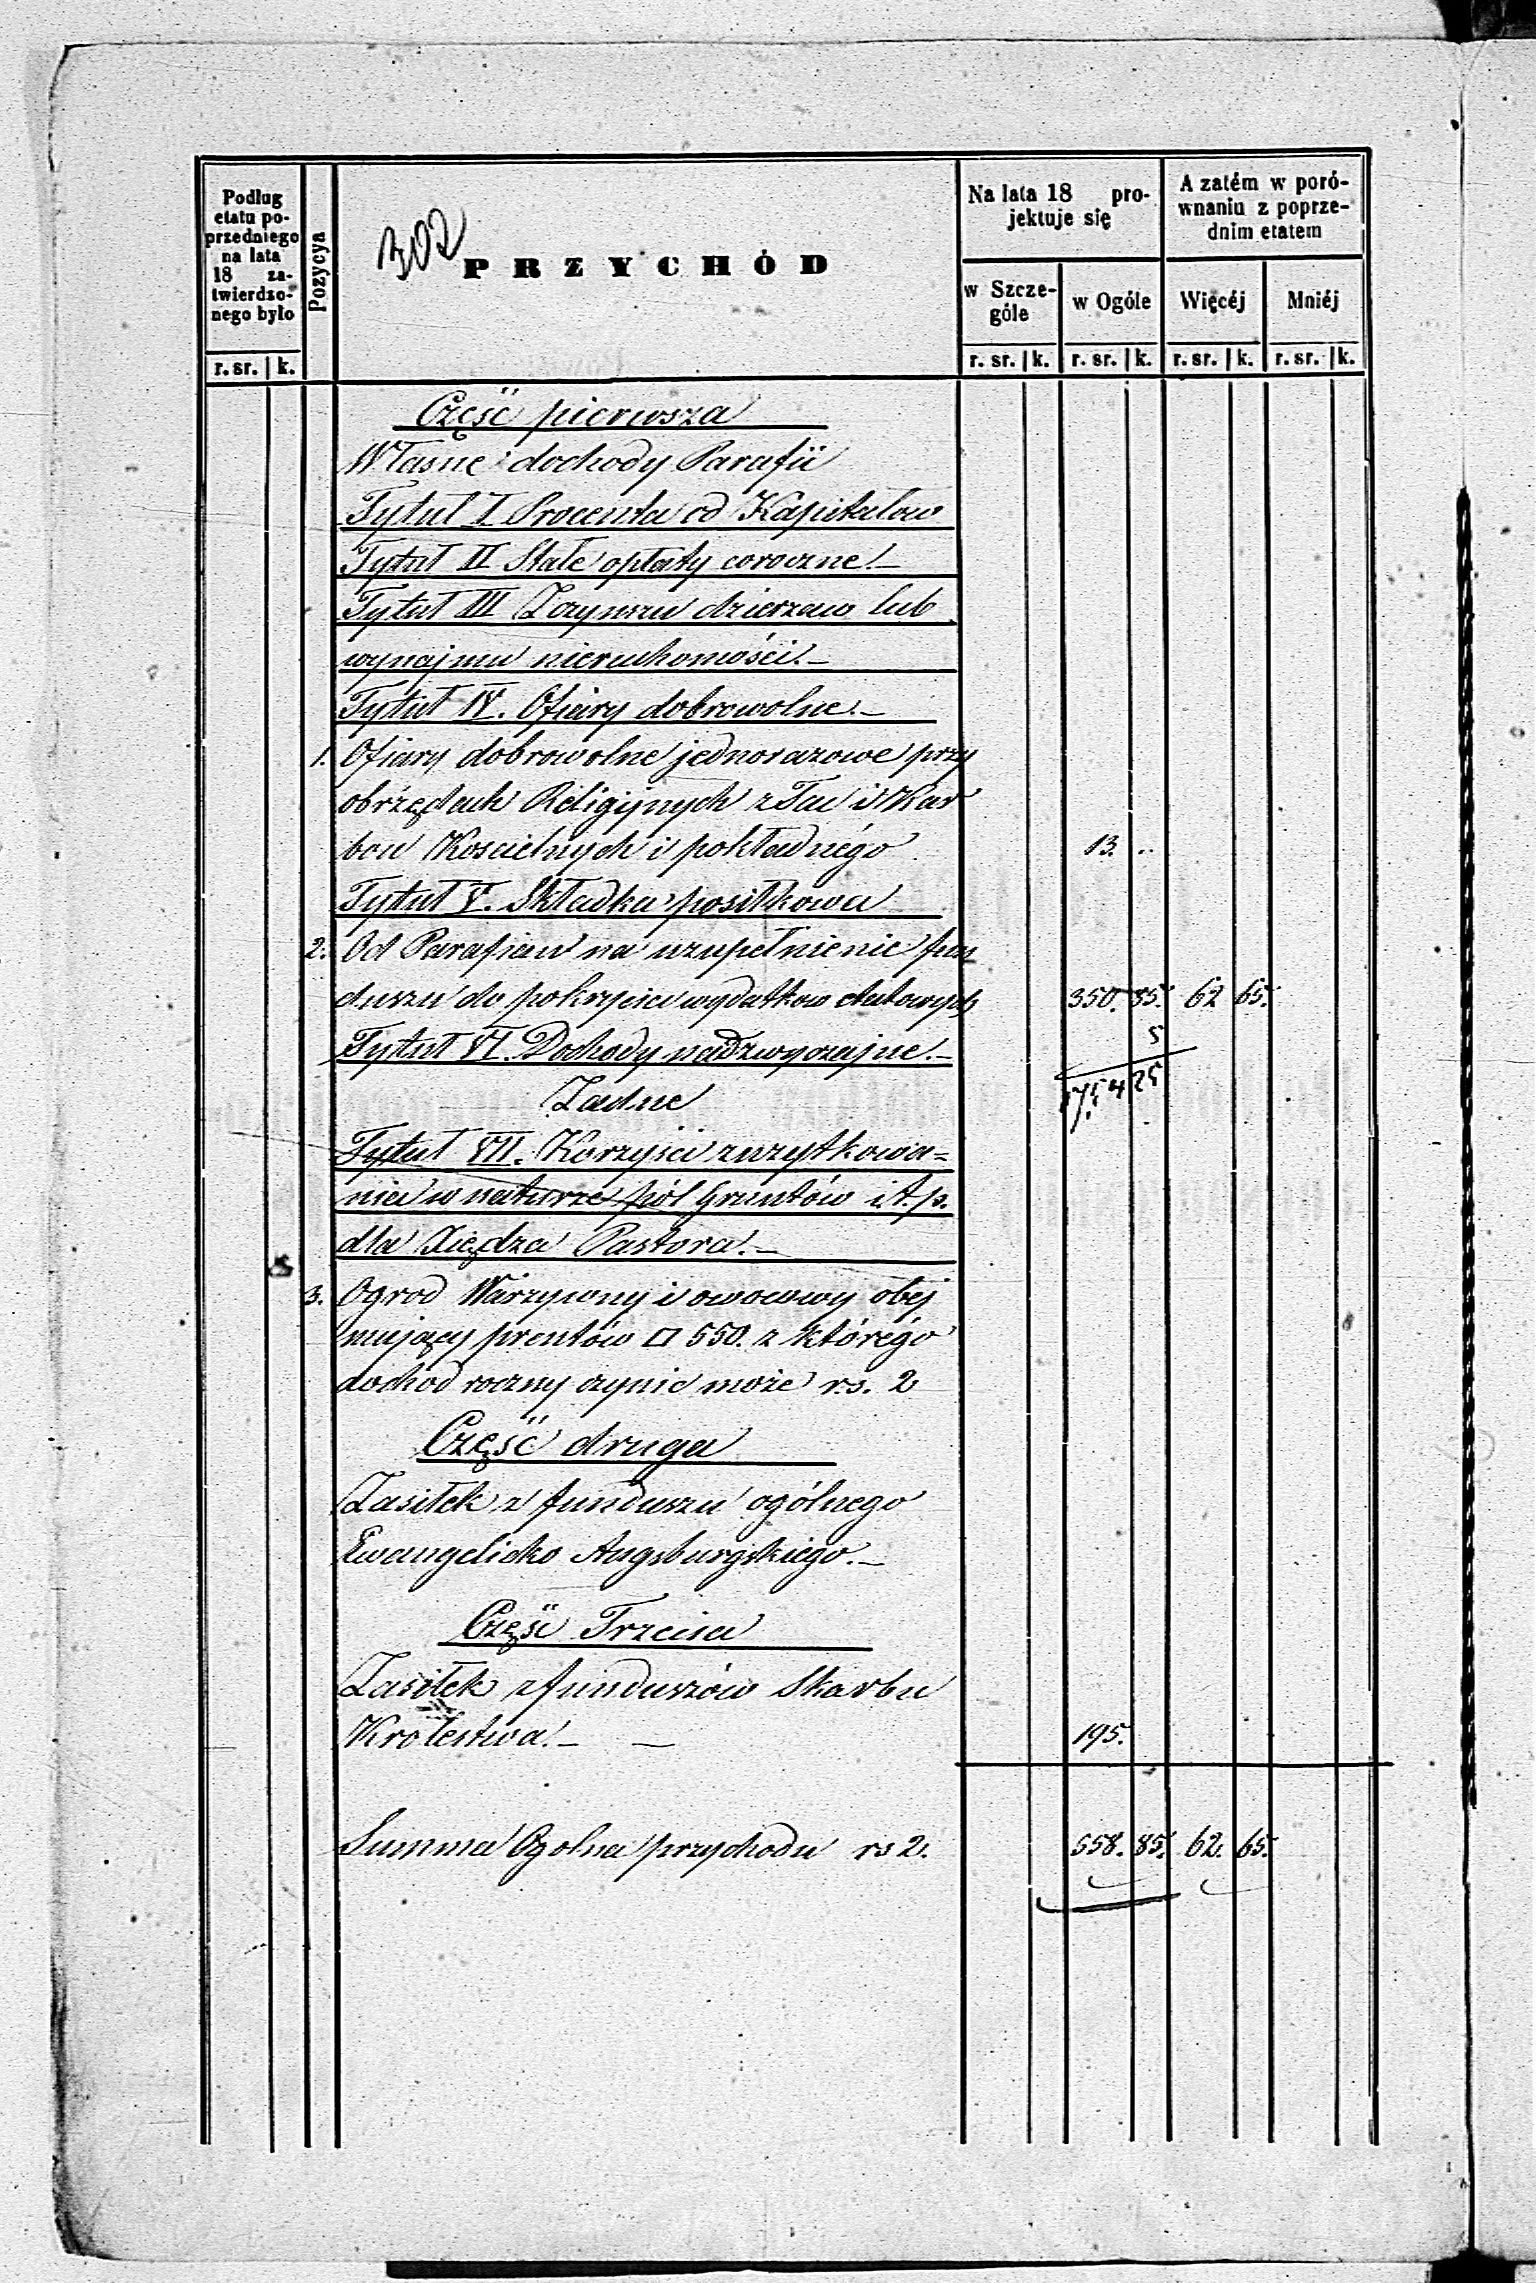 Podług
etatu po-
przedniego
na lata
18 za-
twierdzo-
nego było
r. sr. k.
Pozycya
302
PRZYCHÓD
Na lata 18 pro-
jektuje się
w Szcze-
góle
r. sr. k.
w Ogóle
r. sr. k.
A zatém w poró-
wnaniu z poprze-
dnim etatem
Więcéj
r. sr. k.
Mniéj
r. sr. k.
Część pierwsza
Własne dochody Parafii
Tytuł I Procenta od Kapitałow
Tytuł II Stałe opłaty coroczne.—
Tytuł III Z czynszu dzierzaw lub
wynajmu nieruchomości.—
Tytuł IV. Ofiary dobrowolne.—
1. Ofiary dobrowolne jednorazowe przy
obrzędach Religijnych z Tac i Kar
bon Koscielnych i pokładnégo 13. ..
Tytuł V. Składka posiłkowa
2. Od Parafian na uzupełnienie fun
duszu do pokrycia wydatkow etatowych 350. 85. 62 65.
5
Tytuł VI. Dochody nadzwyczajne.—
25
Żadne
Tytuł VII. Korzyści z uzytkowa=
nia w naturze pól Gruntów i.t.p.
dla Xiędza Pastora.—
3. Ogrod Warzywny i owocowy obej
mujący prentów □ 550. z którégo
dochod roczny czynic może rs. 2
Część druga
Zasiłek z funduszu ogólnego
Ewangelicko Augsburgskiego.—
Część Trzecia
Zasiłek z funduszów Skarbu
Krolestwa.— — 195.
Summa Ogolna przychodu rs 2. 558. 85. 62. 65.